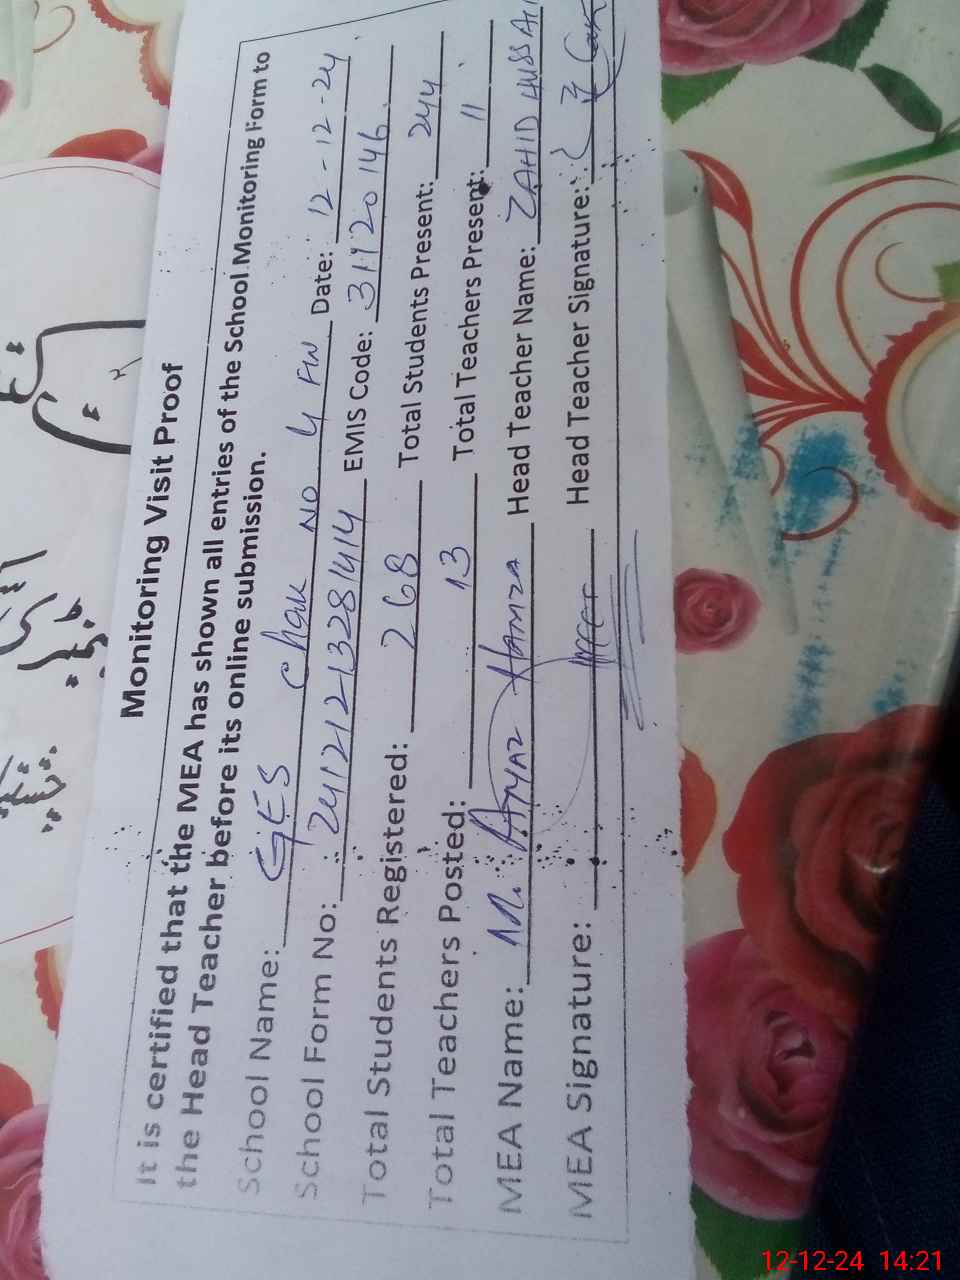 Monitoring Visit Proof
It is certified that the MEA has shown all entries of the School Monitoring Form to
the Head Teacher before its online submission.
School Name: GES Chak NO 4 FW Date: 12-12-24
School Form No: 24121213281414 EMIS Code: 31120146
Total Students Registered: 268 Total Students Present: 244
Total Teachers Posted: 13 Total Teachers Present: 11
MEA Name: M. Ayaz Hamza Head Teacher Name: ZAHID HUSSAIN
MEA Signature: Head Teacher Signature:
12-12-24 14:21